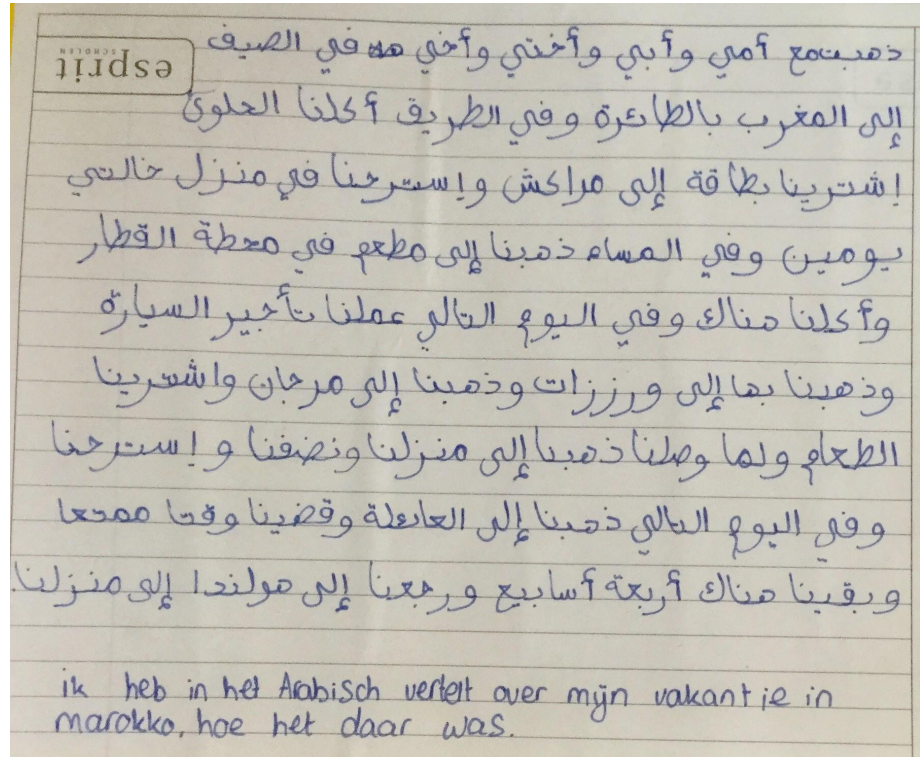 esprit
SCHOLEN
ذهبت مع أمي وأبي وأختي وأخي في الصيف
إلى المغرب بالطائرة وفي الطريق أكلنا الحلوئ
إشترينا بطاقة إلى مراكش وإسترحنا في منزل خالتي
يومين وفي المساء ذهبنا إلى مطعم في محطة القطار
وأكلنا هناك وفي اليوم التالي عملنا تأجير السيارة
وذهبنا بها إلى ورززات وذهبنا إلى مرجان واشترينا
الطعام ولما وصلنا ذهبنا إلى منزلنا ونضفنا وإسترحنا
وفي اليوم التالي ذهبنا إلى العائلة وقضينا وقتا ممتعا
وبقينا هناك أربعة أسابيع ورجعنا إلى هولندا إلى منزلنا.
ik heb in het Arabisch vertelt over mijn vakantie in
marokko, hoe het daar was.